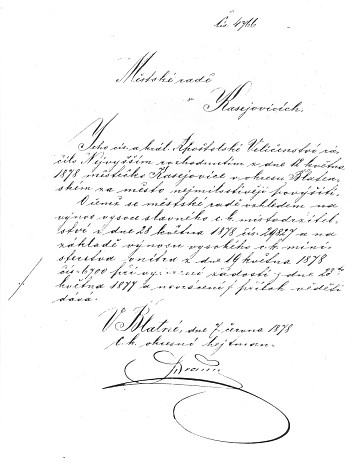 čís. 4766
Městské radě
v Kasejovicích.
Jeho cís. a král. Apoštolské Veličenstvo rá-
čilo Nejvyšším rozhodnutím z dne 12 května
1878 městečko Kasejovice v okresu Blaten-
ském za město nejmilostivěji povýšiti.
O čemž se městské radě vzhledem na
výnos vysoce slavného c. k. místodržitel-
ství z dne 28 května 1878 čís. 29827 a na
základě výnosu vysokého c. k. mini-
sterstva vnitra z dne 19 května 1878
čís. 6700 při žádosti z dne 28
května 1877 a navrácení příloh věděti
dává.
V Blatné, dne 7. června 1878
C. k. okresní hejtman.